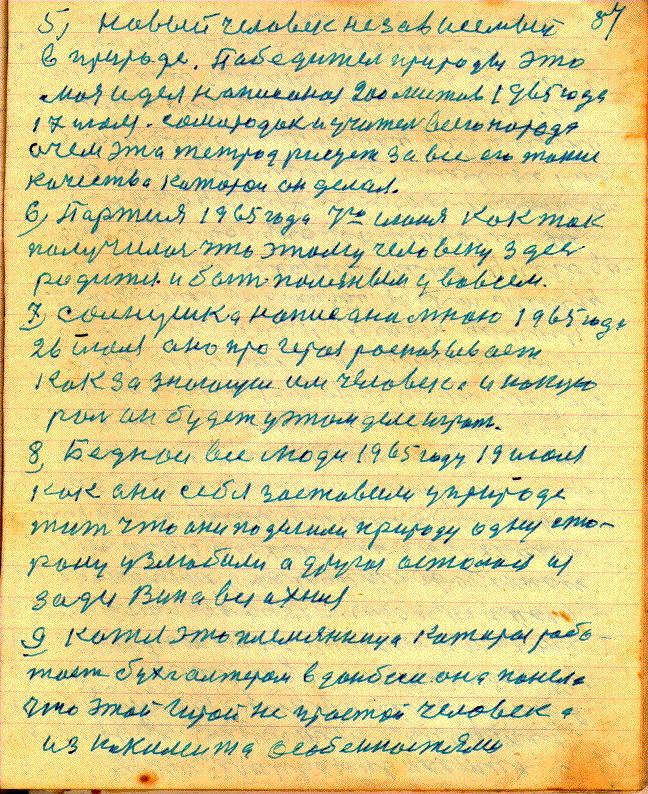 5, Новый человек независемый 37
в природе. Победител природы это
моя идея написаная 200 листов 1965 года
17 июля. самародок и учител всего народа
очем эта тетрад рисует за все его такие
качества каторои он делал.
6, Партия 1965 года 7го июня как так
получилося что этому человеку здес
родится и быт полезным у во всем.
7, солнушка написани мною 1965 года
26 июля ано про героя расказывает
как за знающим им человека и какую
рол он будет у этом деле играт.
8, Беднои все люди 1965 году 19 июля
как ани себя заставили у природе
тит что они поделили природу одну сто-
рану узлюбили а другая осталася из
зади Вина всиахния
9 Катя это племянница каторая рабо-
тает бухгалтером в донбасе она поняла
что этой Герой не простой человек а
из какимита особенностями